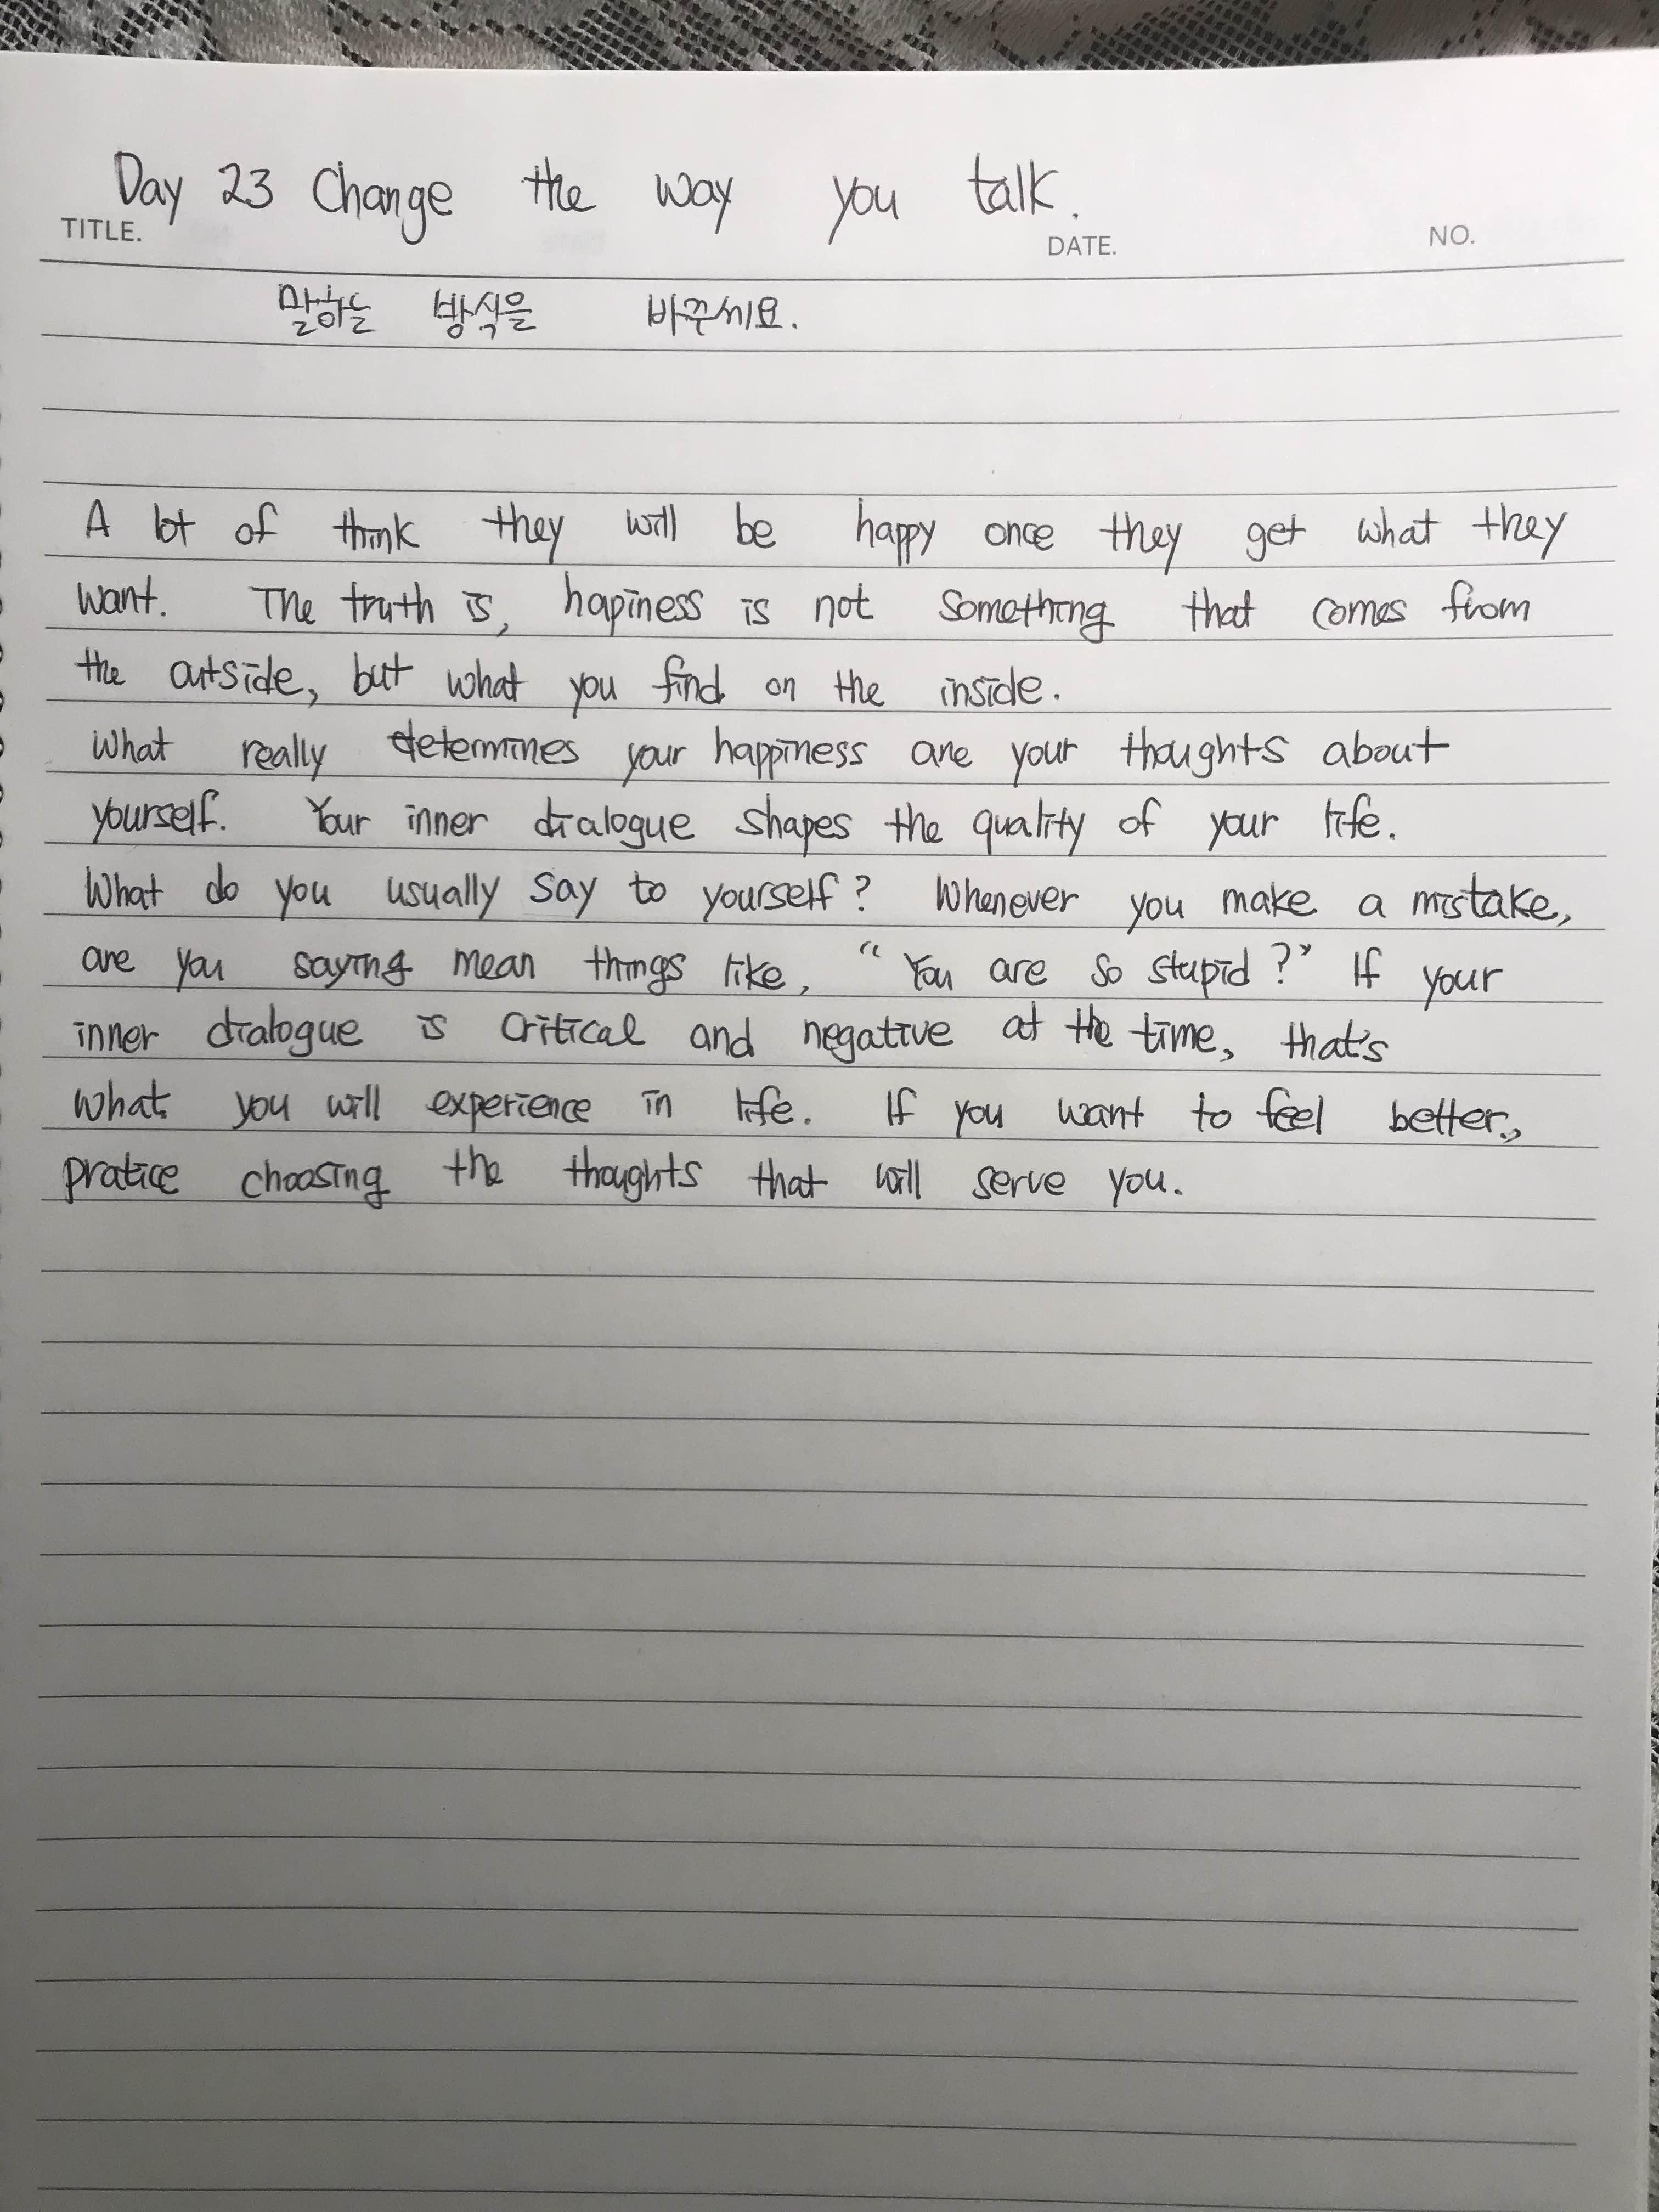 Day 23 Change the way you talk.
TITLE. DATE. NO.
말하는 방식을 바꾸세요.
A lot of think they will be happy once they get what they
want. The truth is, hapiness is not something that comes from
the outside, but what you find on the inside.
What really determines your happiness are your thoughts about
yourself. Your inner dialogue shapes the quality of your life.
What do you usually say to yourself? Whenever you make a mistake,
are you saying mean things like, "You are so stupid?" If your
inner dialogue is critical and negative at the time, that's
what you will experience in life. If you want to feel better,
pratice choosing the thoughts that will serve you.